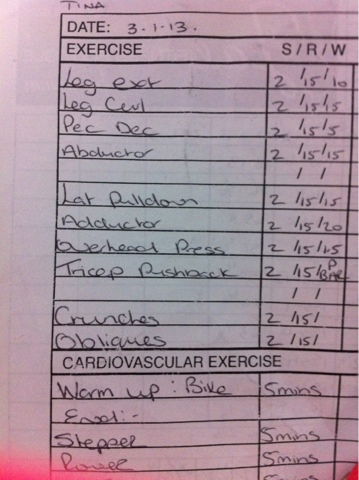 TINA
DATE: 3.1.13.
EXERCISE S / R / W
Leg ext 2 /15/10
Leg Curl 2 /15/5
Pec Dec 2 /15/5
Abductor 2 /15/15
/ /
Lat Pulldown 2 /15/15
Adductor 2 /15/20
Overhead Press 2 /15/15
Tricep Pushback 2 /15/
/ /
Crunches 2 /15/
Obliques 2 /15/
CARDIOVASCULAR EXERCISE
Warm up : Bike 5mins
End:-
Stepper 5mins
Rower 5mins